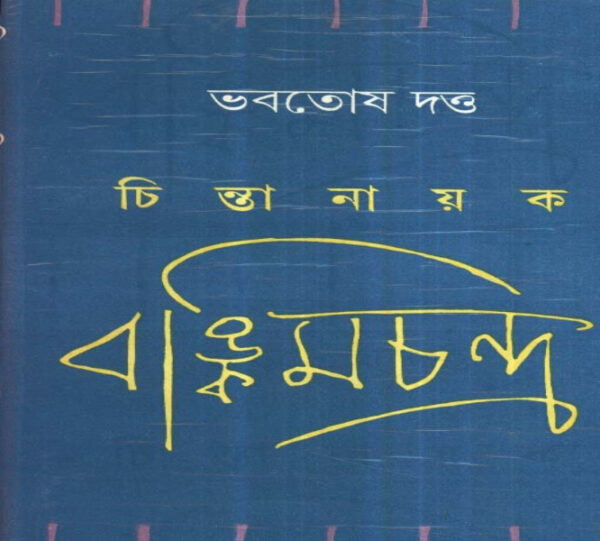 ভবতোষ দত্ত
চিন্তানায়ক
বঙ্কিমচন্দ্র